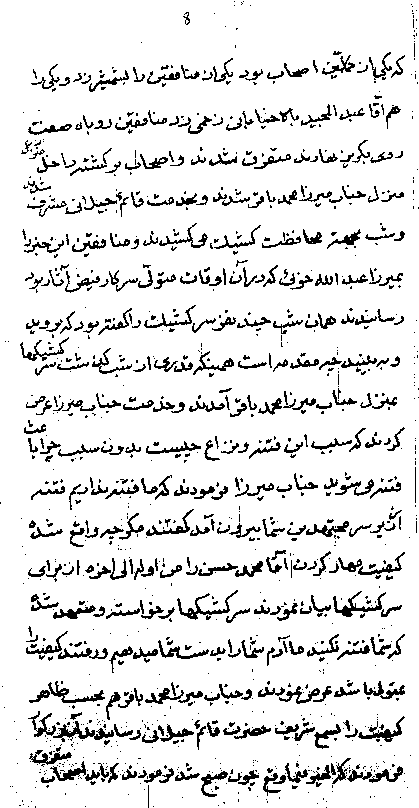 8
که یکی از مخلّصین اصحاب بود یکی از منافقین را بشمشیر زد و یکی را
هم آقا عبد المجید با منافقین زخمی زد منافقین روباه صفت
روی بگریز نهادند متفرّق شدند و اصحاب برگشته داخل
منزل جناب میرزا محمد باقر شدند و بخدمت قائم جیلانی مشرّف شدند
و شب بجهة محافظت کشیک می کشیدند و منافقین این خبر را
بمیرزا عبد الله خوئی که در آن اوقات متولّی سرکار فیض آثار بود
رسانیدند همان شب چند نفر سرکشیک را گفته بود که بروید
و به بینید چه مقدمه است همینکه قدری از شب گذشت سرکشیکها
بمنزل جناب میرزا محمد باقر آمدند و خدمت جناب میرزا عرض
کردند که سبب این فتنه و نزاع چیست بدون سبب چرا باعث
فتنه می شوید جناب میرزا فرمودند که ما فتنه نداریم فتنه
از سر مجتهدین شما بیرون آمد گفتند مگر چه واقع شده
کیفیت مهار کردن آقا محمد حسن را من اوله الی آخره از برای
سرکشیکها بیان نمودند سرکشیکها برخواسته و متعهد شده
که شما فتنه نکنید ما آدم شما را بدست شما میدهیم و رفتند کیفیت را
بمتولّی باشد عرض نمودند و جناب میرزا محمد باقر هم بحسب ظاهر
کیفیت را بسمع شریف حضرت قائم جیلانی رسانیدند
فرمودند که الخیر فی ما وقع چون صبح شد فرمودند که باید اصحاب متفرق